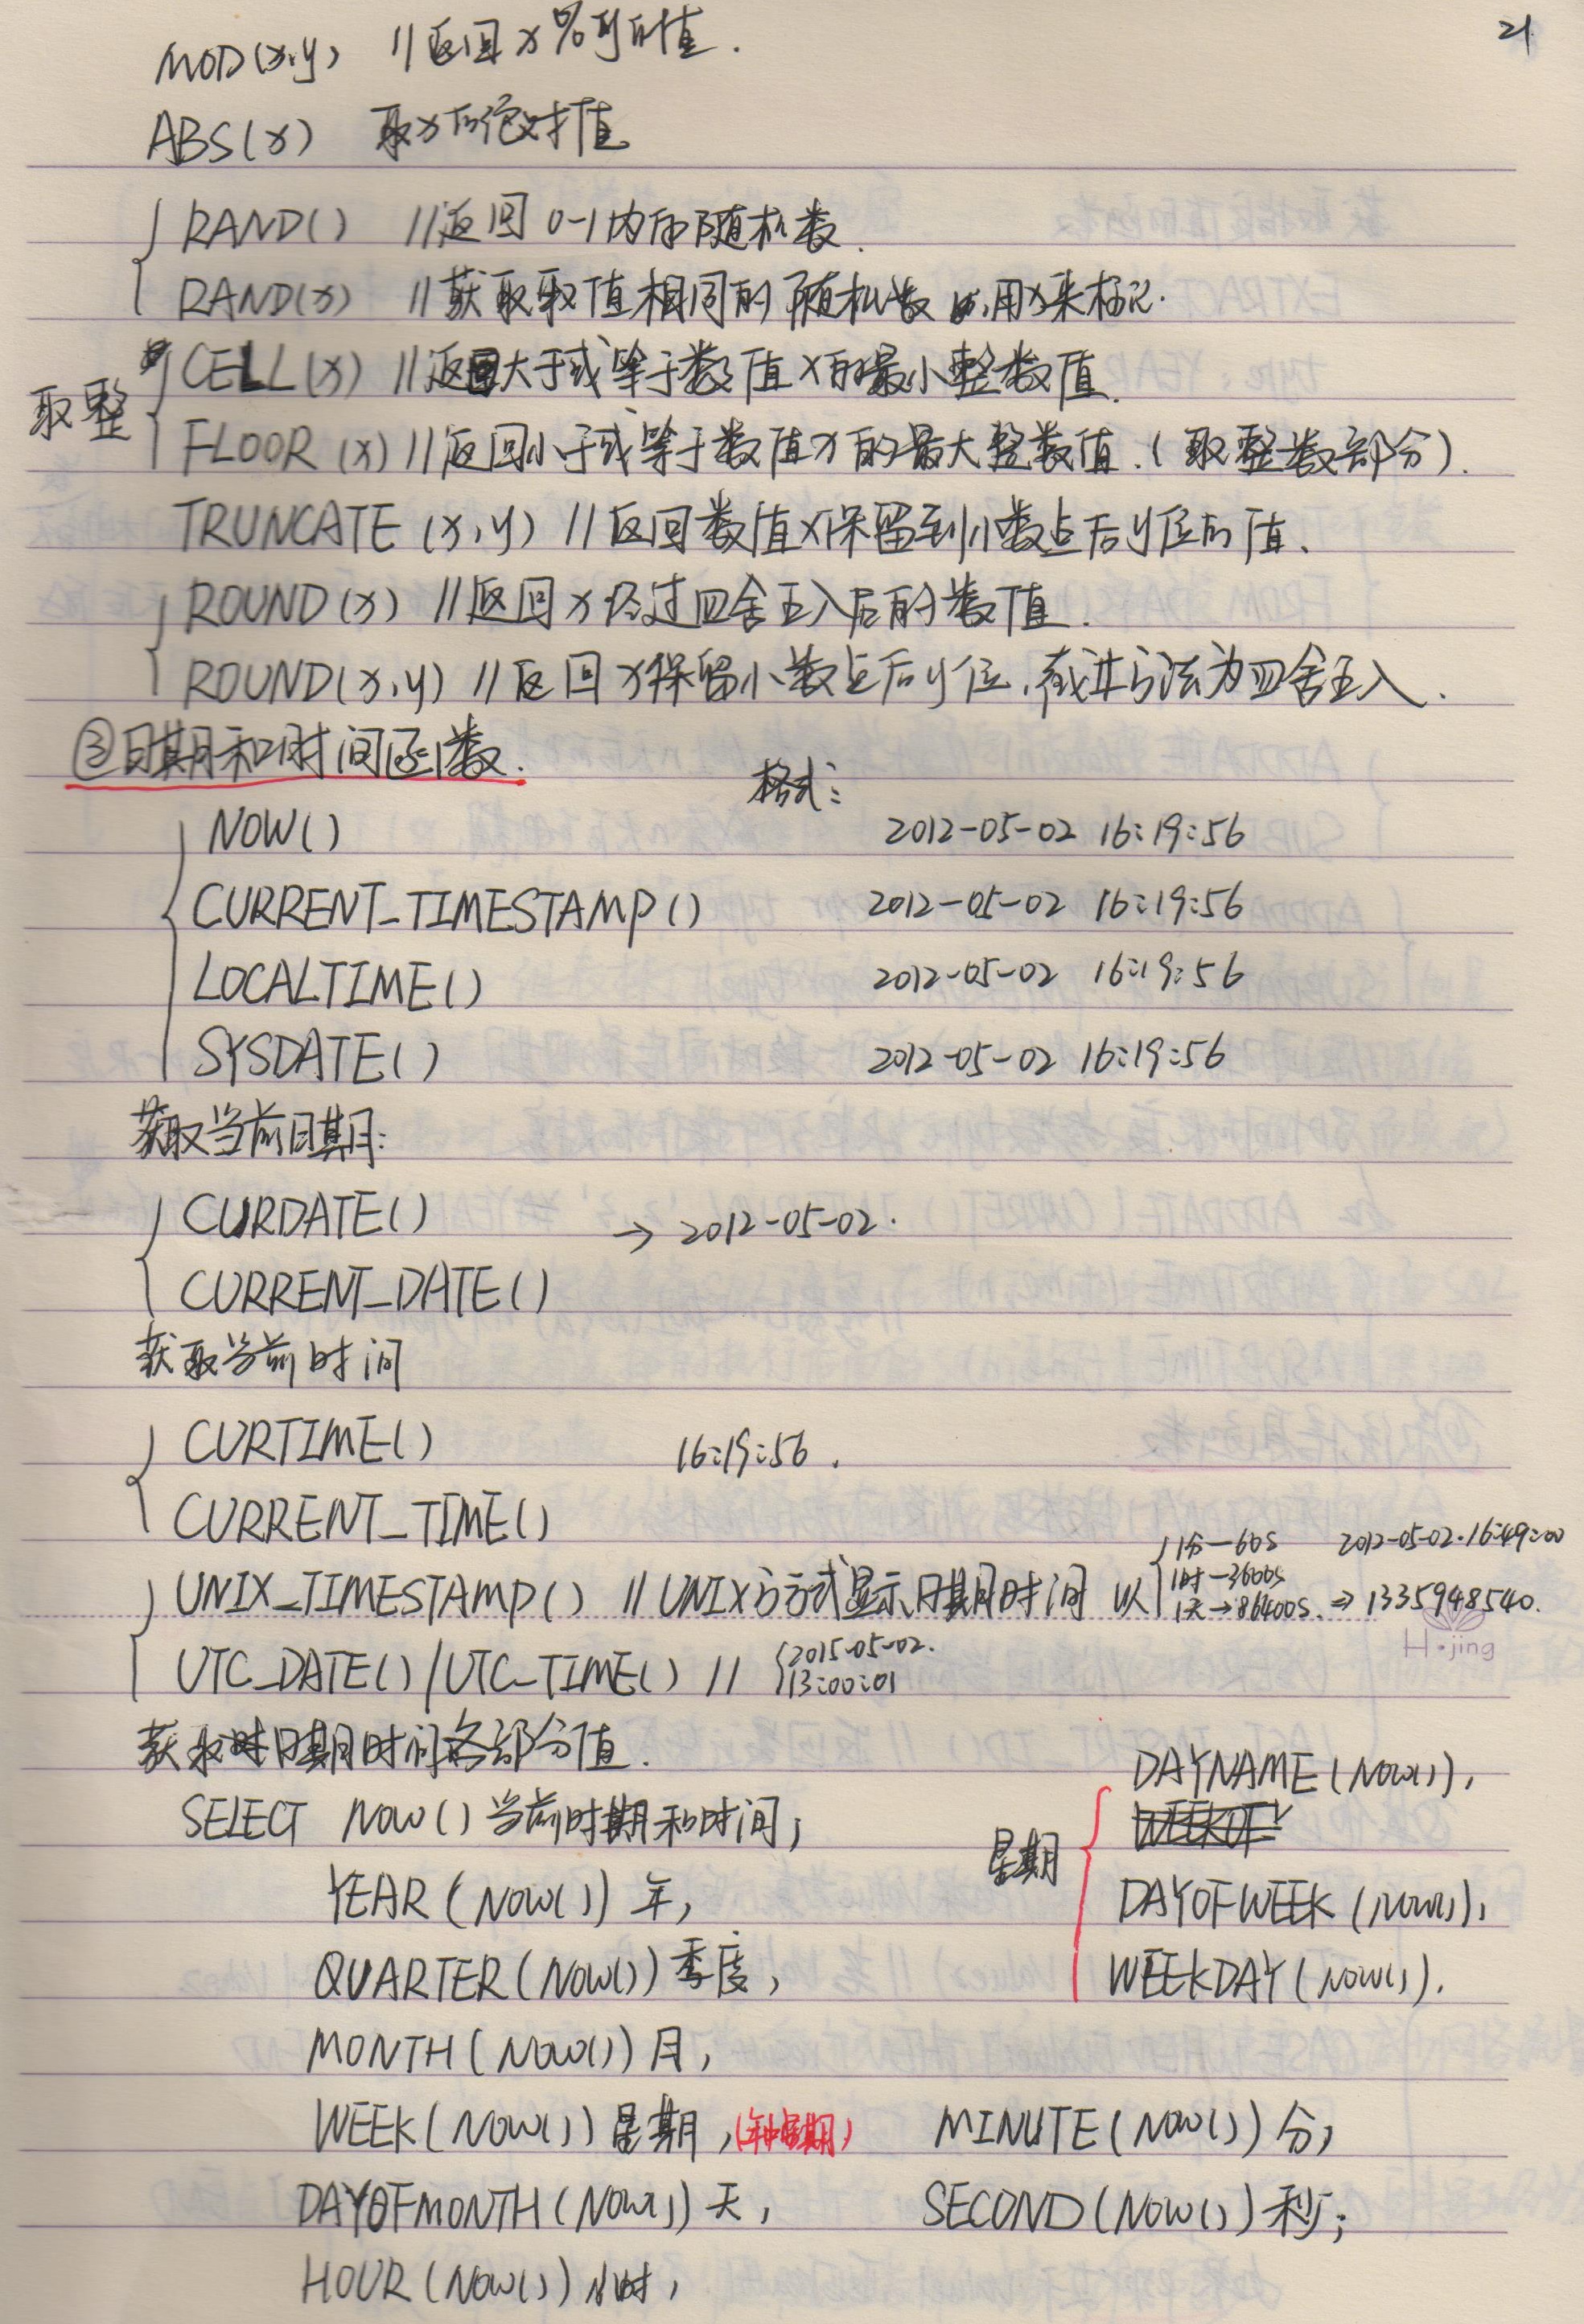 21
MOD(x,y) //返回x%y的值.
ABS(x) 取x的绝对值
RAND() //返回0-1内的随机数.
RAND(x) //获取取值相同的随机数,用x来标记.
取整
CELL(x) //返回大于或等于数值x的最小整数值.
FLOOR(x) //返回小于或等于数值x的最大整数值.(取整数部分).
TRUNCATE(x,y) //返回数值x保留到小数点后y位的值.
ROUND(x) //返回x经过四舍五入后的数值.
ROUND(x,y) //返回x保留小数点后y位,截断方法为四舍五入.
③日期和时间函数.
格式:
NOW() 2012-05-02 16:19:56
CURRENT_TIMESTAMP() 2012-05-02 16:19:56
LOCALTIME() 2012-05-02 16:19:56
SYSDATE() 2012-05-02 16:19:56
获取当前日期:
CURDATE() → 2012-05-02.
CURRENT_DATE()
获取当前时间
CURTIME() 16:19:56.
CURRENT_TIME()
1分—60s 2012-05-02.16:49:00
UNIX_TIMESTAMP() //UNIX方式显示日期时间 以 1时—3600s
1天→86400s. ⇒ 1335948540.
H·jing
UTC_DATE()/UTC_TIME() // 2015-05-02.
13:00:01
获取日期时间各部分值.
SELECT NOW() 当前时期和时间,
YEAR(NOW()) 年,
QUARTER(NOW()) 季度,
MONTH(NOW()) 月,
WEEK(NOW()) 星期,
DAYOFMONTH(NOW()) 天,
HOUR(NOW()) 小时,
MINUTE(NOW()) 分,
SECOND(NOW()) 秒;
星期
DAYNAME(NOW()),
DAYOFWEEK(NOW()),
WEEKDAY(NOW()).